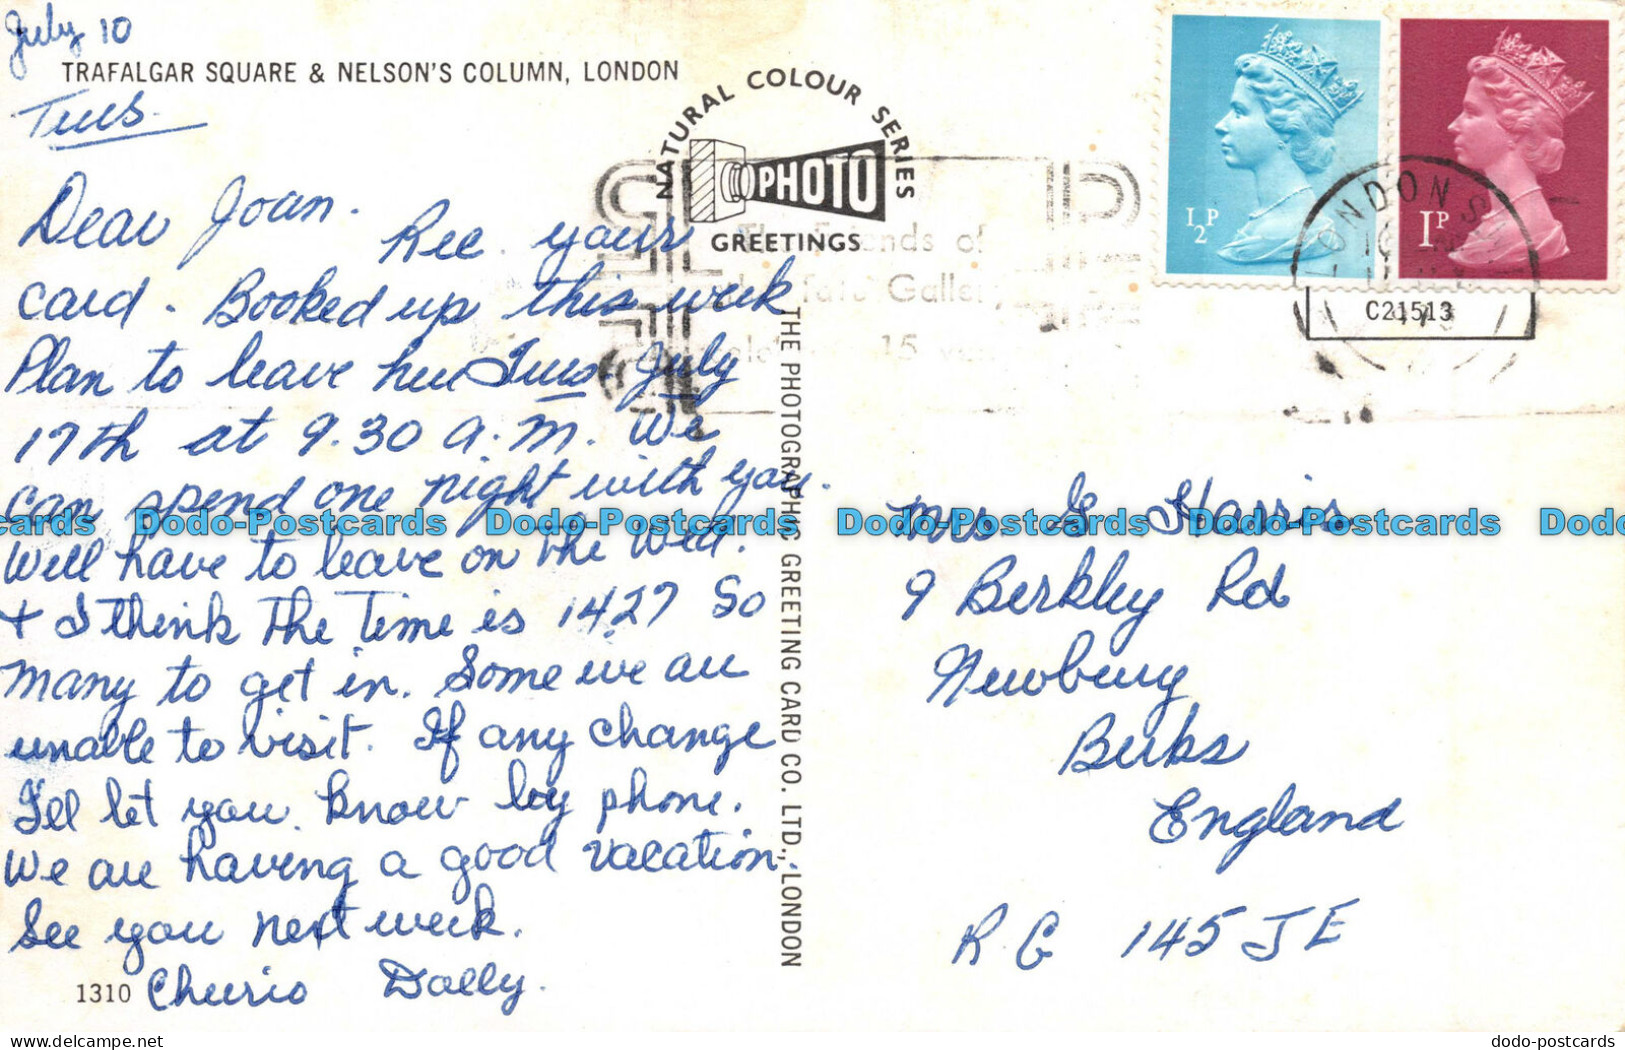 July 10
TRAFALGAR SQUARE & NELSON'S COLUMN, LONDON
Tues.
Dear Joan.
Rec your
card. Booked up this week
Plan to leave here Tues July
17th at 9.30 A.M. We
can spend one night with you.
Will have to leave on the Wed.
+ I think the time is 14.27 So
many to get in. Some we are
unable to visit. If any change
I'll let you know by phone.
We are having a good vacation.
See you next week.
Cheerio Dolly.
1310
NATURAL COLOUR SERIES
PHOTO
GREETINGS
THE PHOTOGRAPHIC GREETING CARD CO. LTD., LONDON
The Friends of
Tate Gallery
15
½P
1P
LONDON S
C21513
Mrs G Harris
9 Berkley Rd
Newbury
Berks
England
R.G 145JE
Dodo-Postcards Dodo-Postcards Dodo-Postcards Dodo-Postcards
dodo-postcards